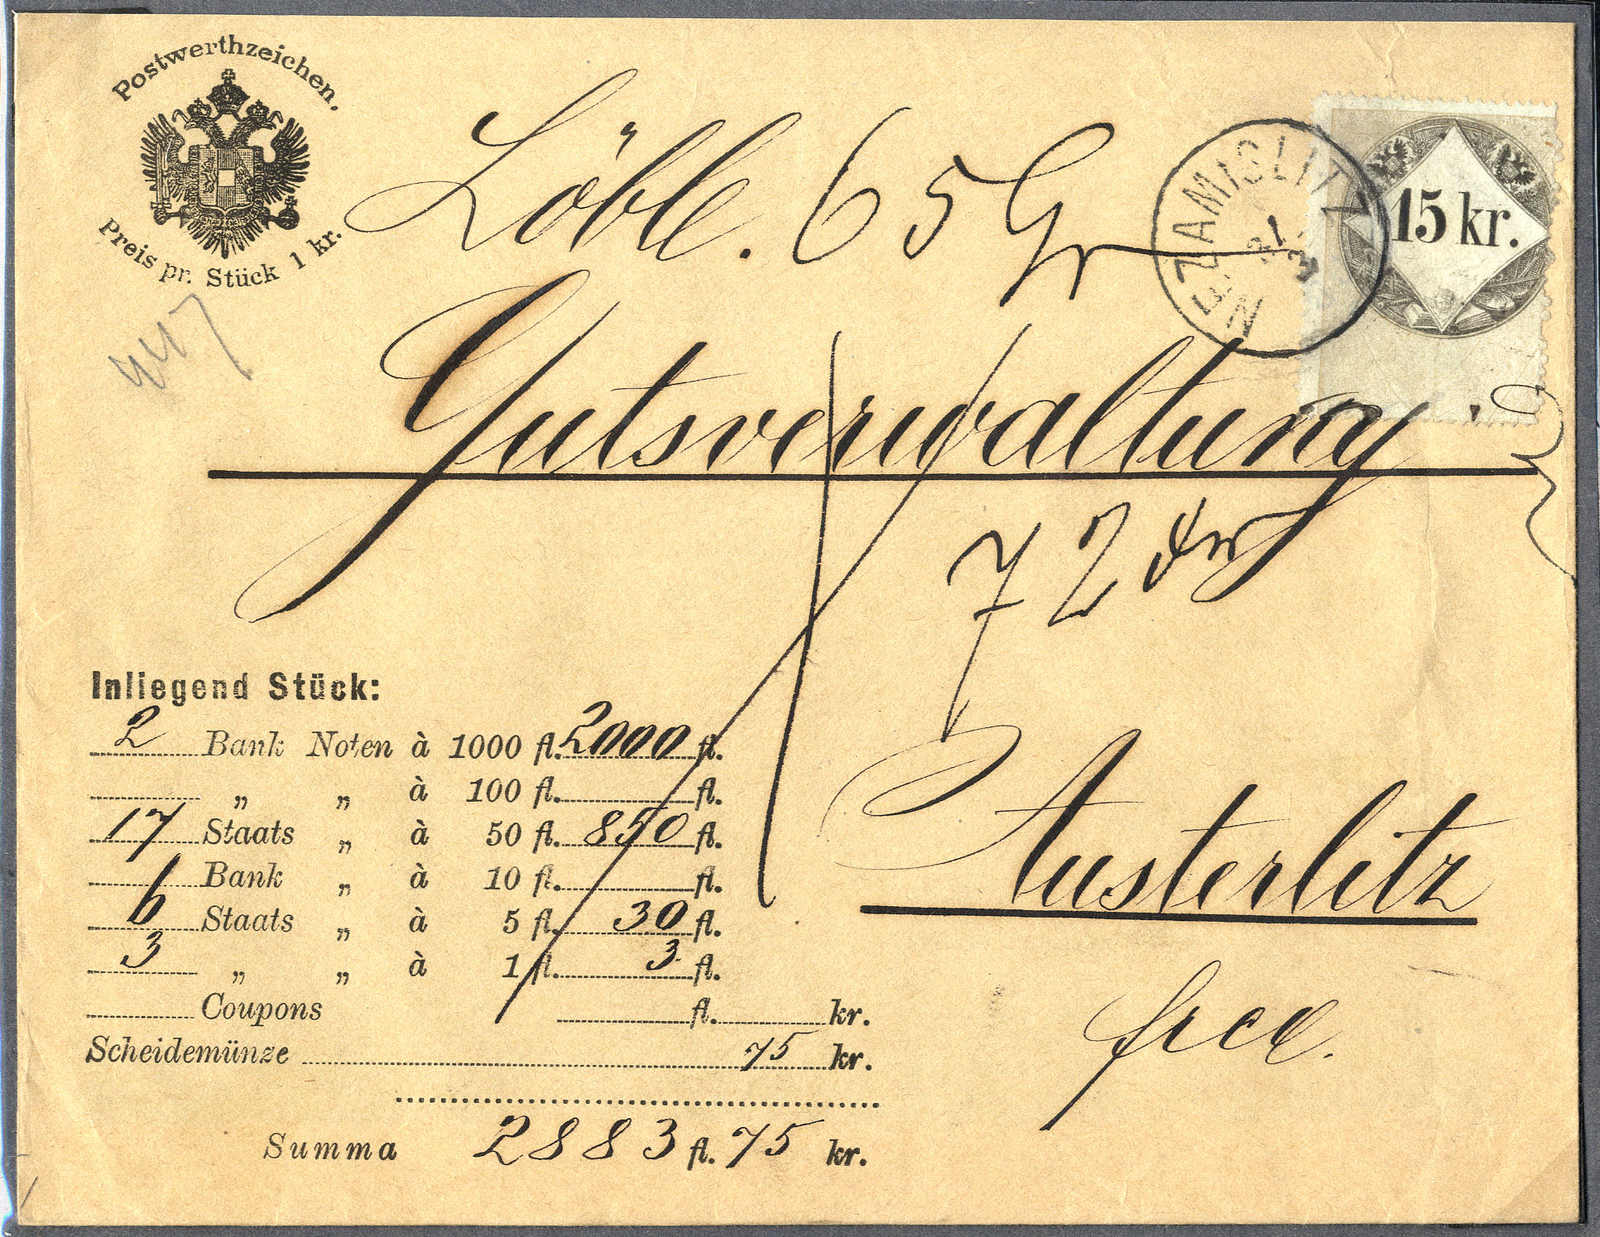 Postwerthzeichen.
Preis pr. Stück 1 kr.
Löbl.
65 Gr
NEZAMISLITZ
15 kr.
Gutsverwaltung
72
Austerlitz
frco.
Inliegend Stück:
2 Bank Noten à 1000 fl. 2000 fl.
„ „ à 100 fl. fl.
17 Staats „ à 50 fl. 850 fl.
Bank „ à 10 fl. fl.
6 Staats „ à 5 fl. 30 fl.
3 „ „ à 1 fl. 3 fl.
Coupons fl. kr.
Scheidemünze 75 kr.
Summa 2883 fl. 75 kr.